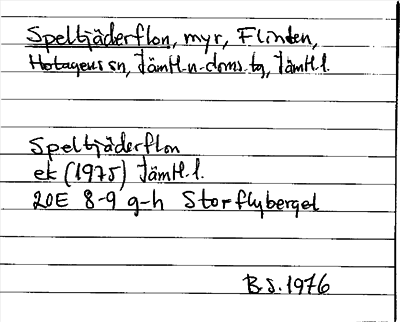 Speltjäderflon, myr, Flinten,
Hotagens sn, Jämtl. n. doms. tg, Jämtl. l.
Speltjäderflon
ek (1975) Jämtl. l.
20E 8-9 g-h Storflyberget
B.S. 1976